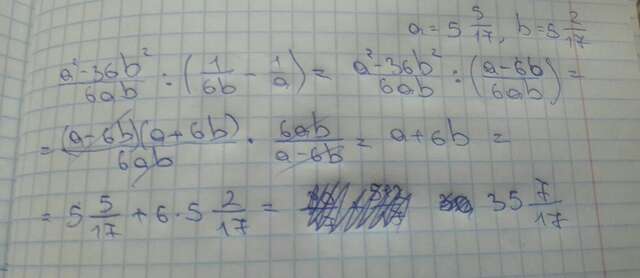 a = 5 5/17, b = 5 2/17
(a² - 36b²)/(6ab) : (1/(6b) - 1/a) = (a² - 36b²)/(6ab) : ((a - 6b)/(6ab)) =
= ((a - 6b)(a + 6b))/(6ab) · (6ab)/(a - 6b) = a + 6b =
= 5 5/17 + 6 · 5 2/17 = 35 7/17